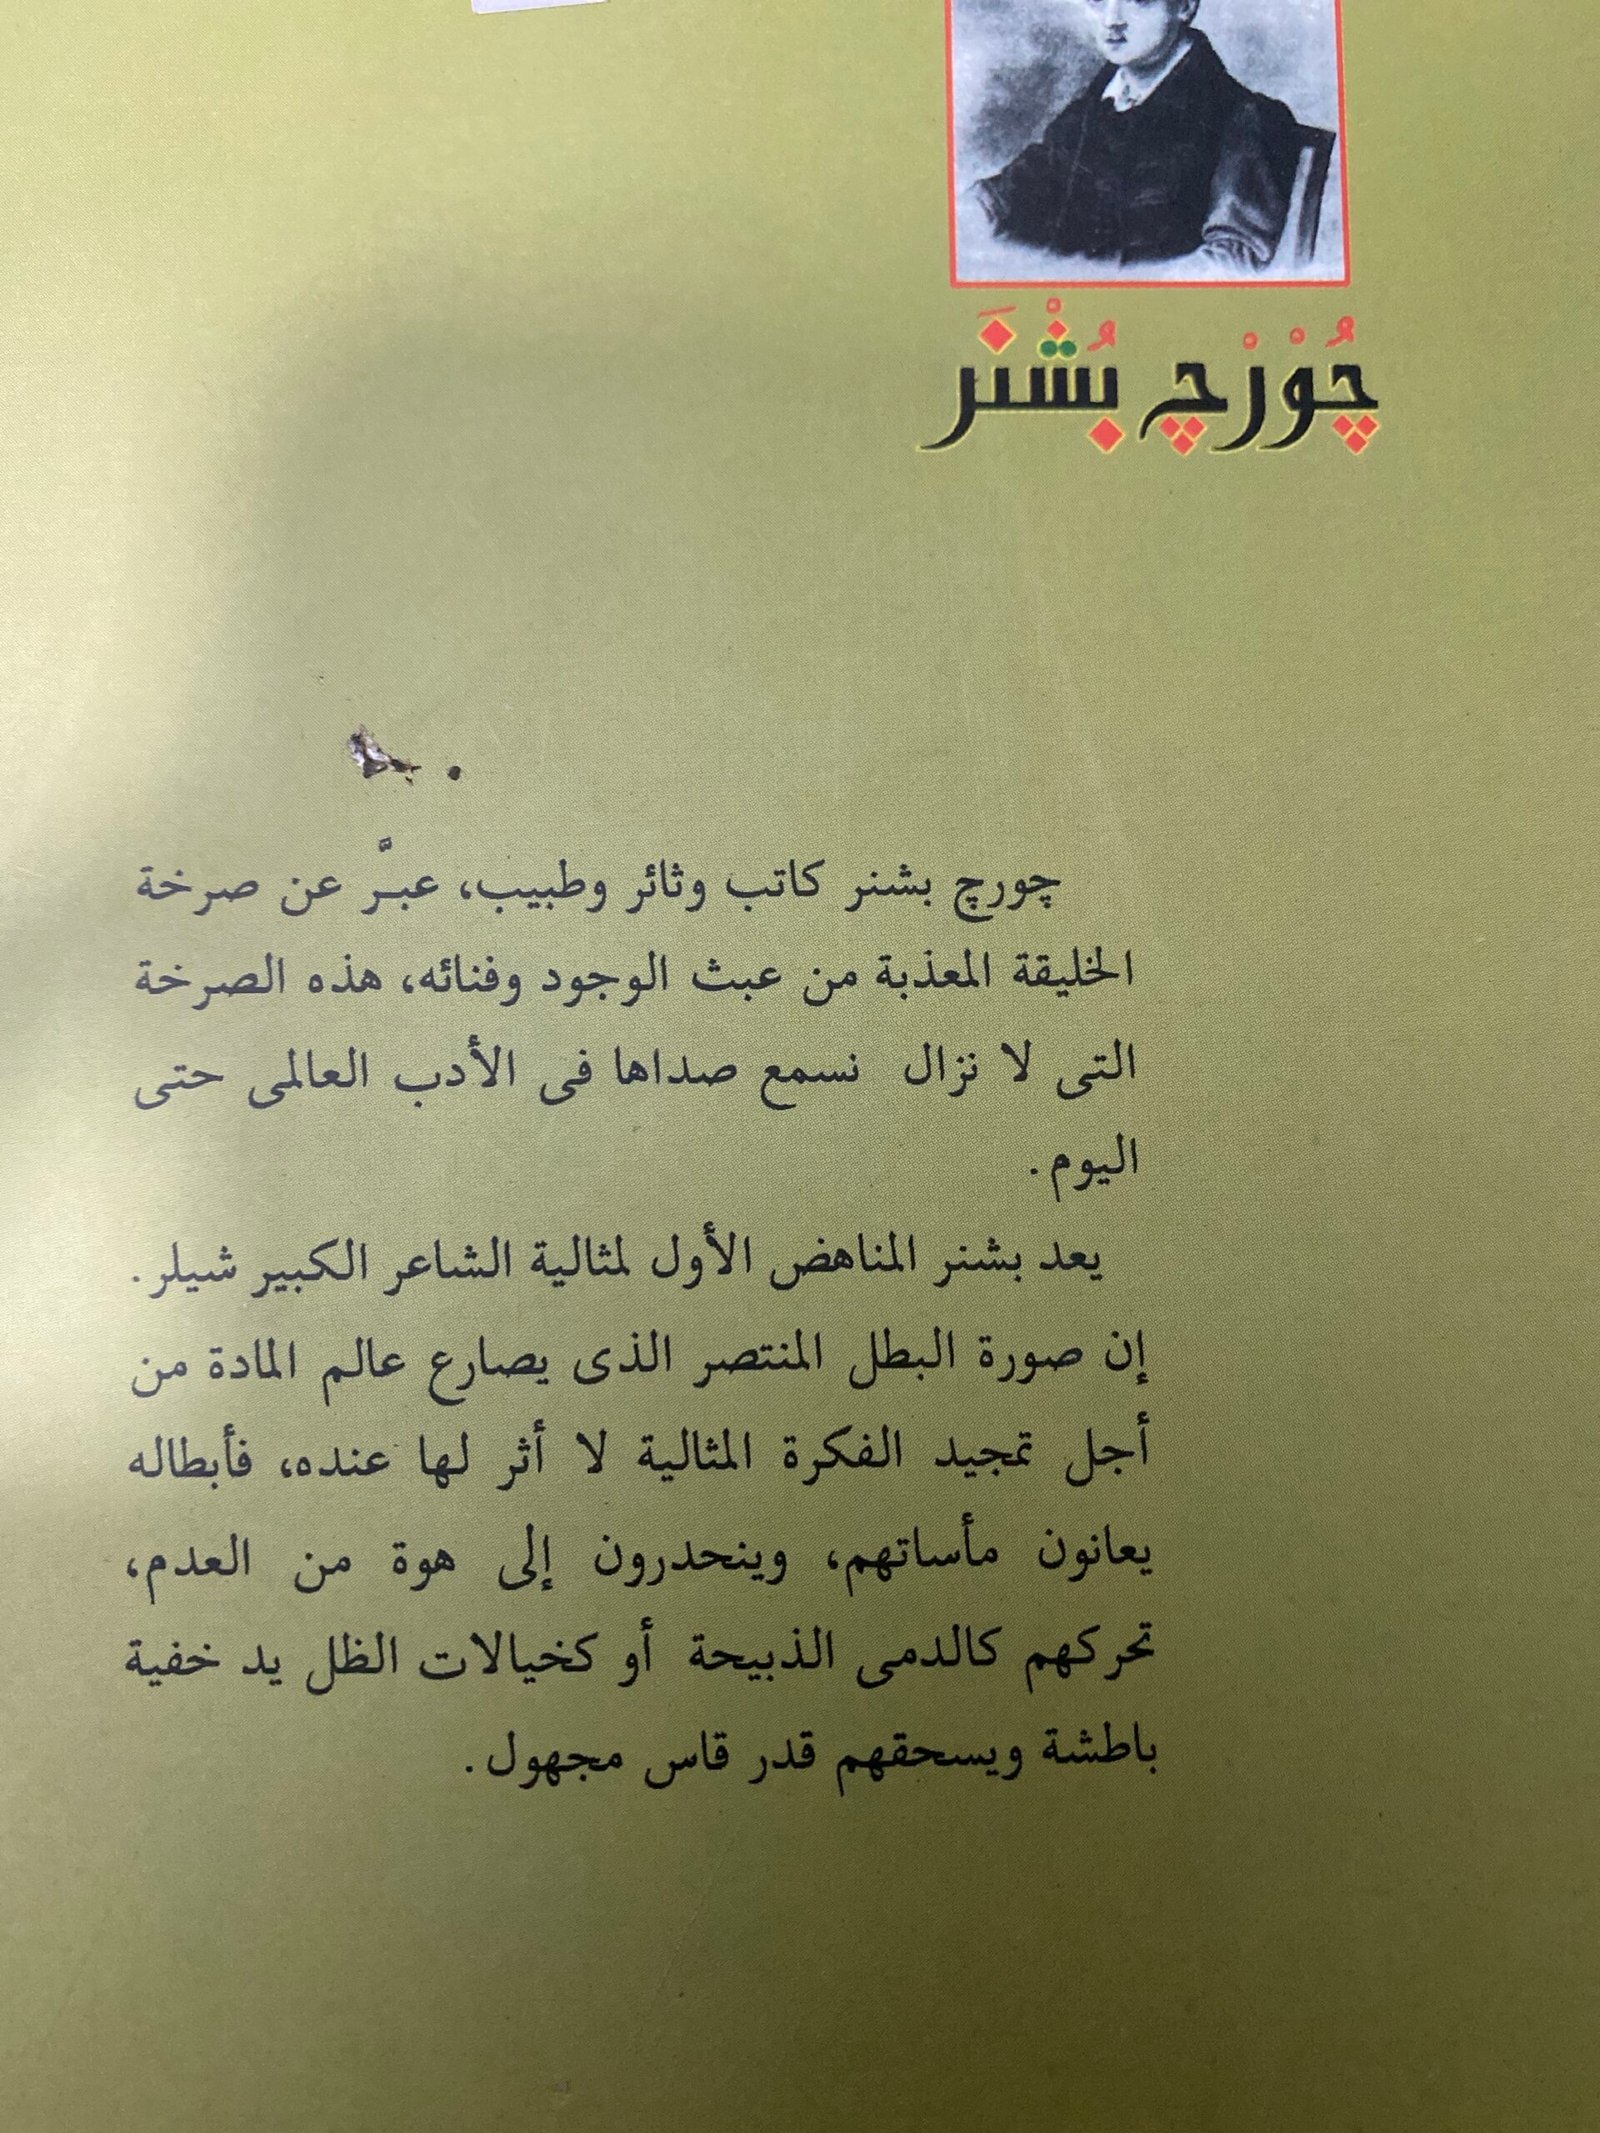 چُوْرْچ بُشْنَر
چورچ بشنر كاتب وثائر وطبيب، عبـَّر عن صرخة
الخليقة المعذبة من عبث الوجود وفنائه، هذه الصرخة
التى لا نزال نسمع صداها فى الأدب العالمى حتى
اليوم.
يعد بشنر المناهض الأول لمثالية الشاعر الكبير شيلر.
إن صورة البطل المنتصر الذى يصارع عالم المادة من
أجل تمجيد الفكرة المثالية لا أثر لها عنده، فأبطاله
يعانون مأساتهم، وينحدرون إلى هوة من العدم،
تحركهم كالدمى الذبيحة أو كخيالات الظل يد خفية
باطشة ويسحقهم قدر قاس مجهول.